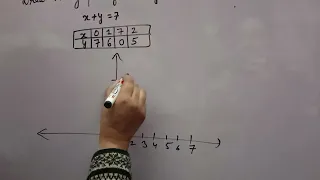 x+y=7
x 0 1 7 2
y 7 6 0 5
2 3 4 5 6 7